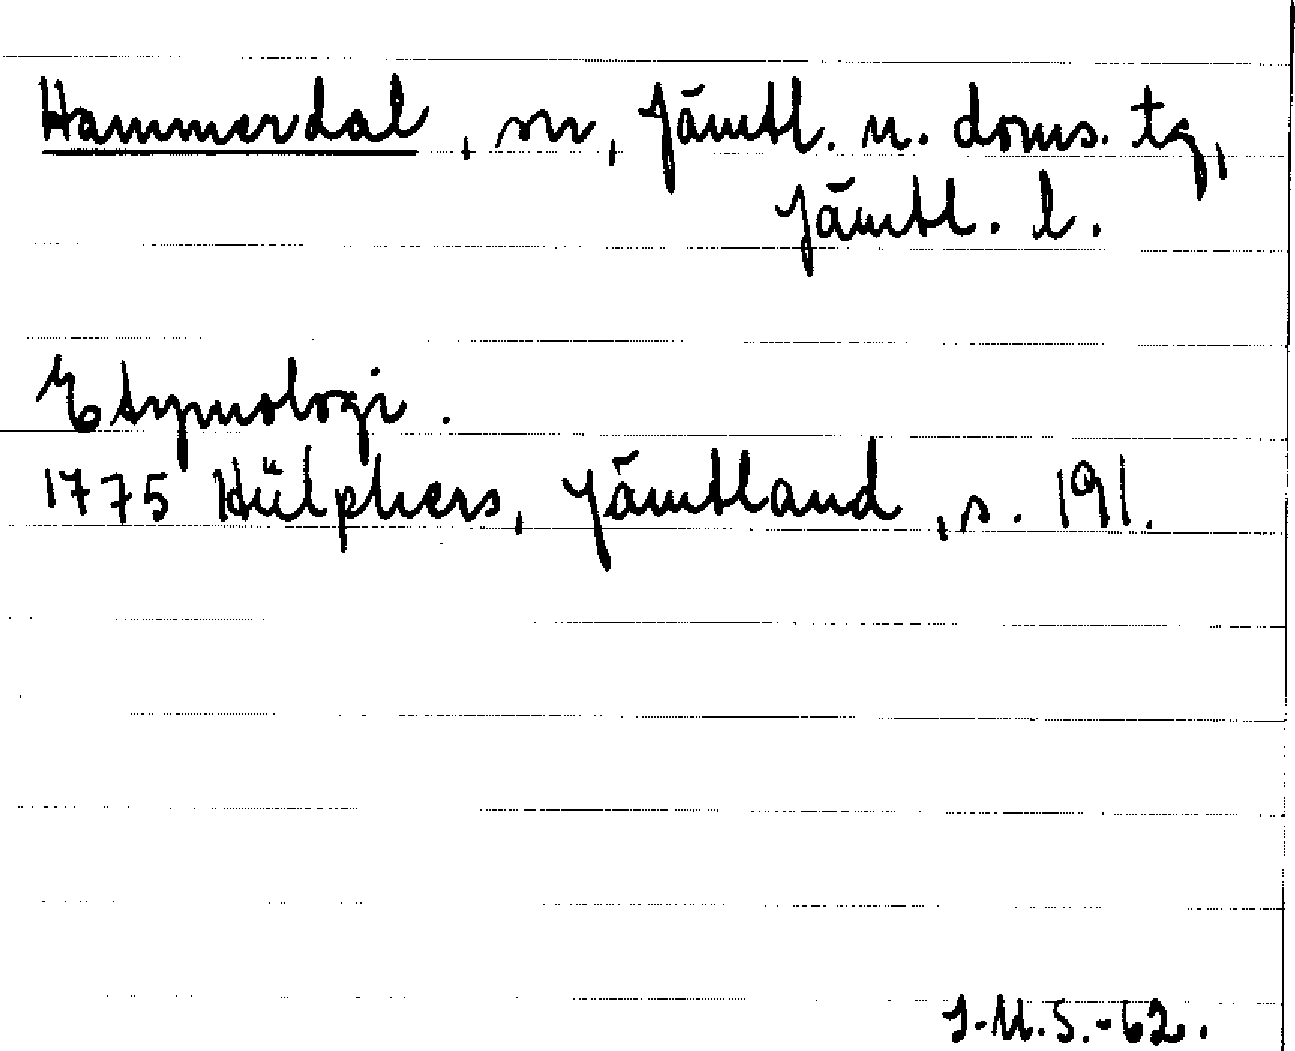 Hammerdal, sn, Jämtl. n. doms. tg,
Jämtl. l.
Etymologi.
1775 Hülphers, Jämtland, s. 191.
J.M.S.-62.